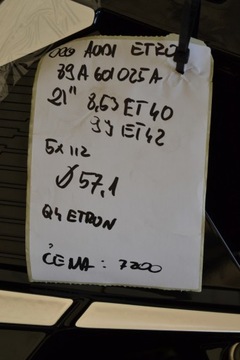 AUDI ETRO
89A 601 025A
21" 8,5J ET40
9J ET42
5x112
Ø57,1
Q4 ETRON
CENA: 7200